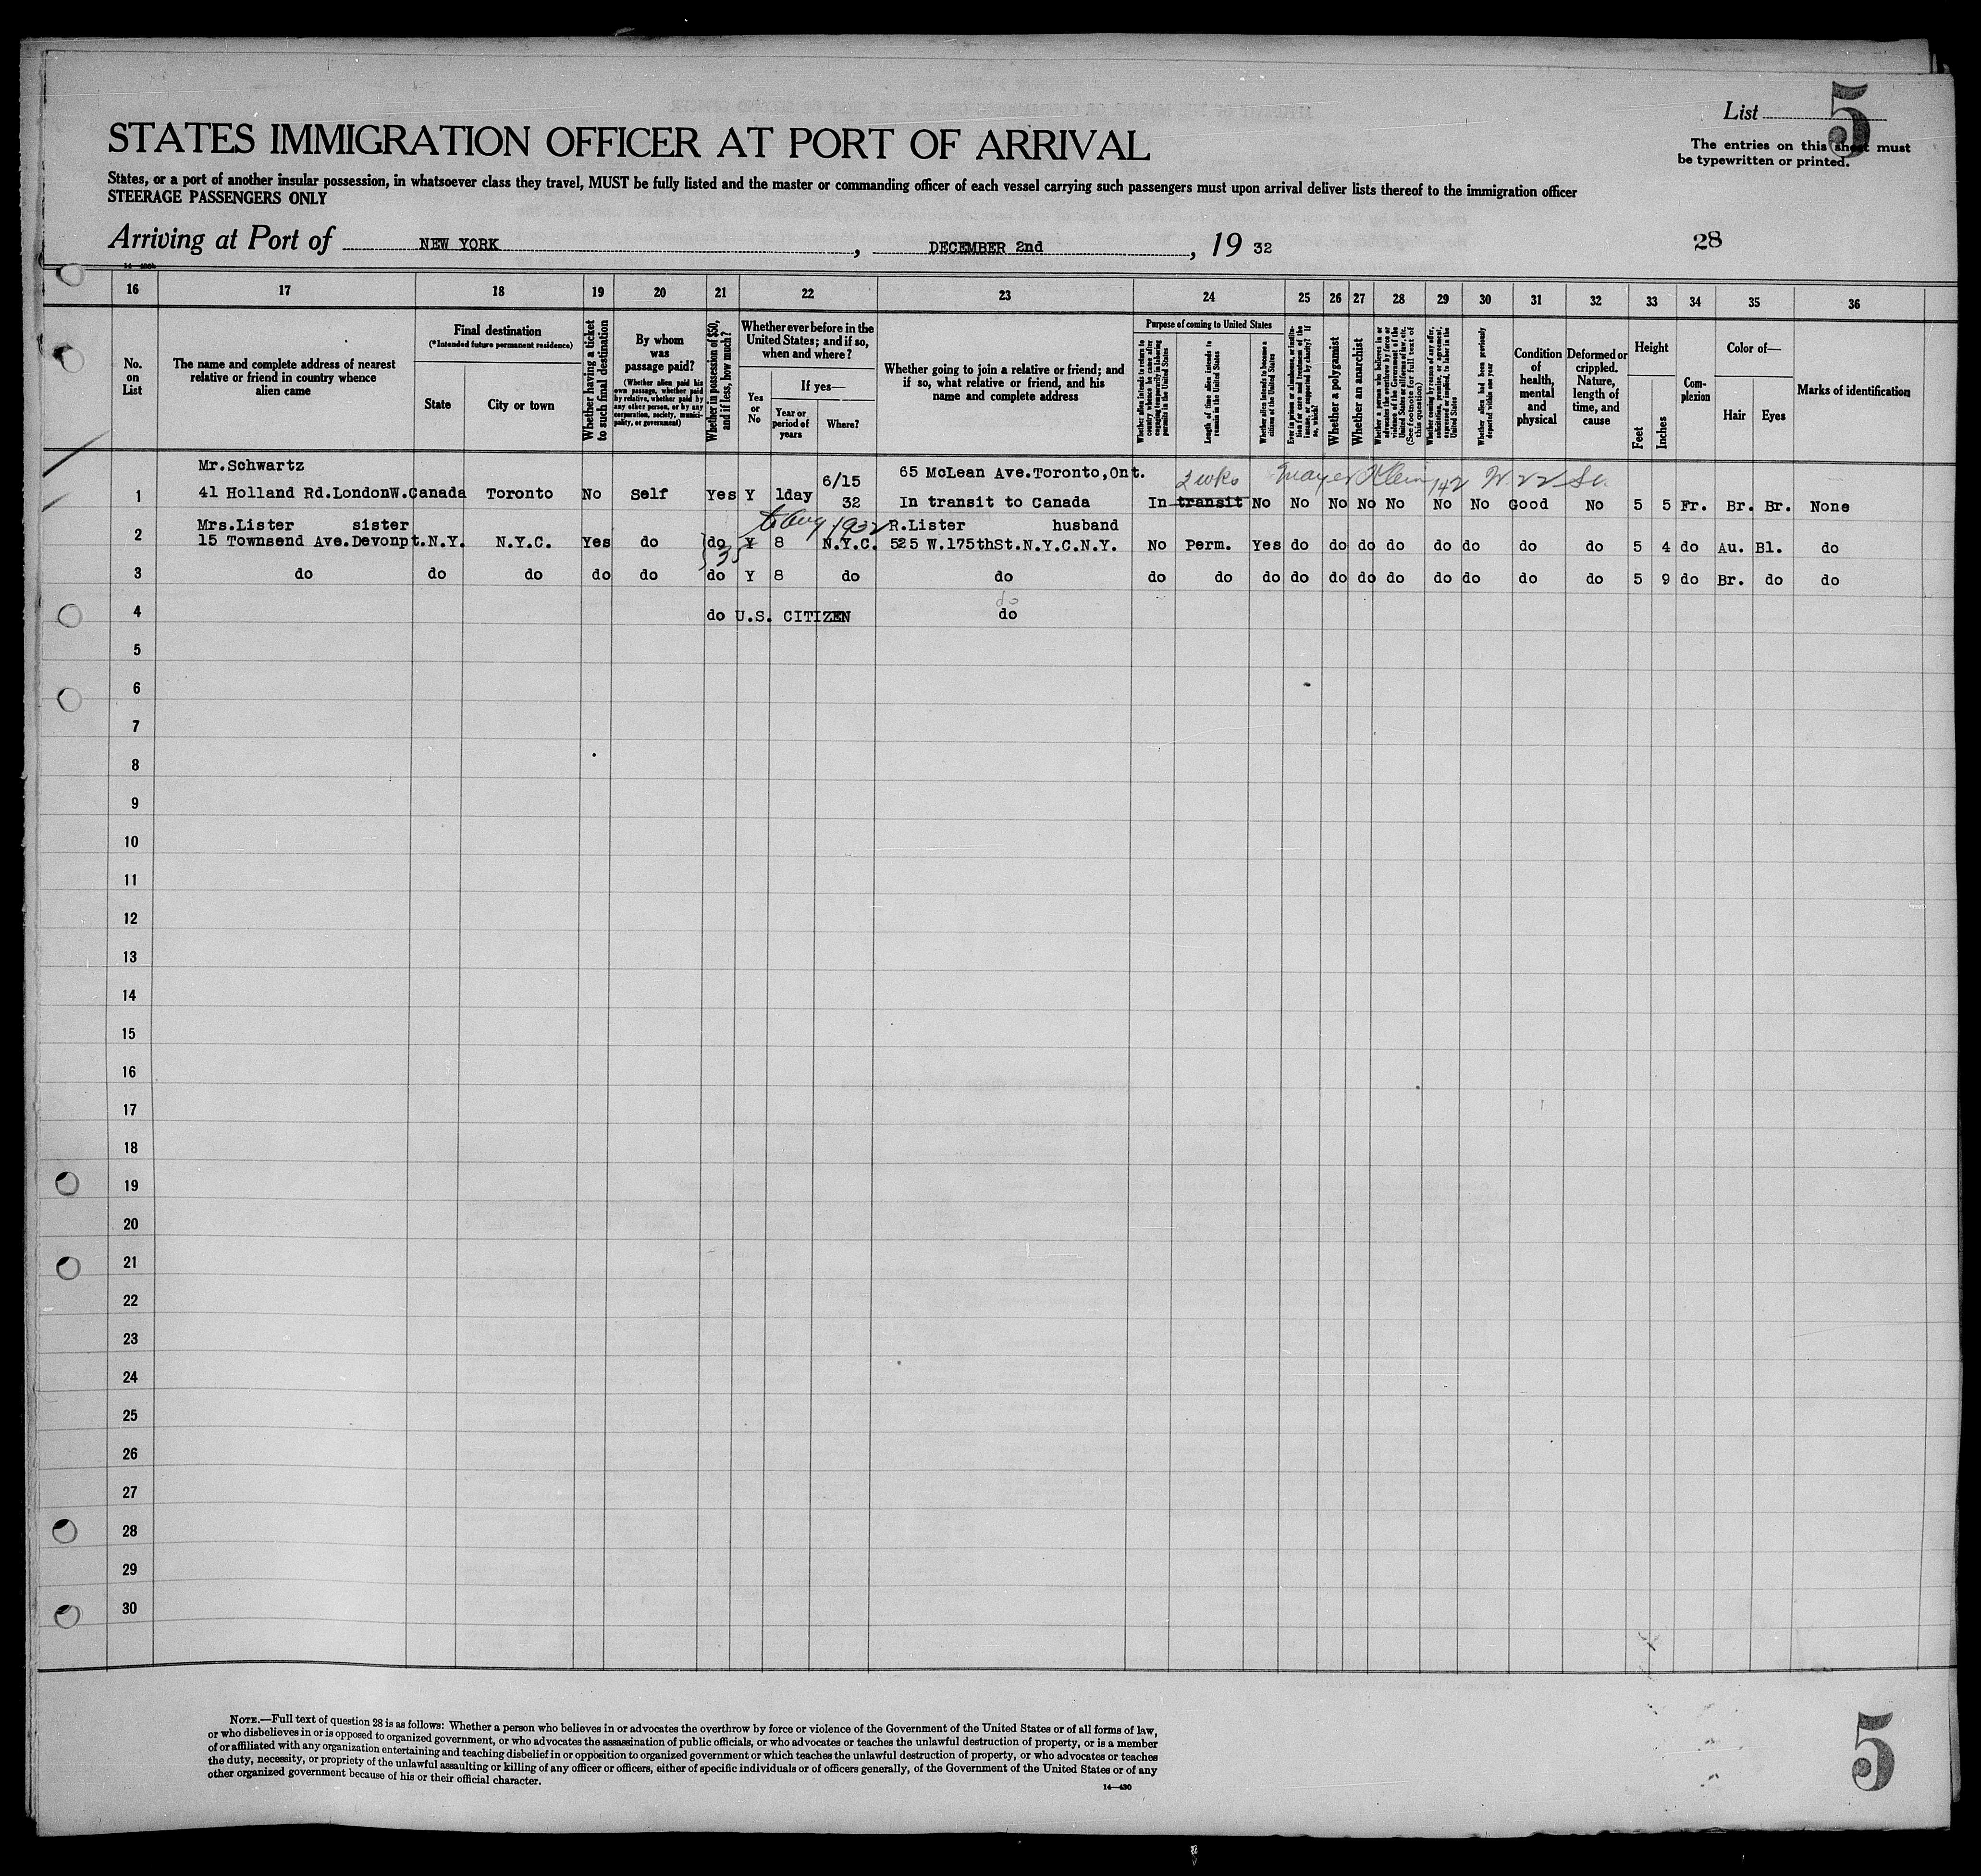 List 5
The entries on this sheet must
be typewritten or printed.
STATES IMMIGRATION OFFICER AT PORT OF ARRIVAL
States, or a port of another insular possession, in whatsoever class they travel, MUST be fully listed and the master or commanding officer of each vessel carrying such passengers must upon arrival deliver lists thereof to the immigration officer
STEERAGE PASSENGERS ONLY
Arriving at Port of NEW YORK, DECEMBER 2nd, 19 32
28
16 17 18 19 20 21 22 23 24 25 26 27 28 29 30 31 32 33 34 35 36
No. on List
The name and complete address of nearest relative or friend in country whence alien came
Final destination
(*Intended future permanent residence)
State
City or town
Whether having a ticket to such final destination
By whom was passage paid?
(Whether alien paid his own passage, whether paid by relative, whether paid by any other person, or by any corporation, society, municipality, or government)
Whether in possession of $50, and if less, how much?
Whether ever before in the United States; and if so, when and where?
Yes or No
If yes—
Year or period of years
Where?
Whether going to join a relative or friend; and if so, what relative or friend, and his name and complete address
Purpose of coming to United States
Whether alien intends to return to country whence he came after engaging temporarily in laboring pursuits in the United States
Length of time alien intends to remain in the United States
Whether alien intends to become a citizen of the United States
Ever in prison or almshouse, or institution for care and treatment of the insane, or supported by charity? If so, which?
Whether a polygamist
Whether an anarchist
Whether a person who believes in or advocates the overthrow by force or violence of the Government of the United States or all forms of law, etc. (See footnote for full text of this question)
Whether coming by reason of any offer, solicitation, promise, or agreement, expressed or implied, to labor in the United States
Whether alien had been previously deported within one year
Condition of health, mental and physical
Deformed or crippled. Nature, length of time, and cause
Height
Feet
Inches
Complexion
Color of—
Hair
Eyes
Marks of identification
Mr.Schwartz 6/15 65 McLean Ave.Toronto,Ont. 2 wks Mayer Klein 142 W 22 St.
1 41 Holland Rd.LondonW.Canada Toronto No Self Yes Y 1day 32 In transit to Canada In transit No No No No No No No Good No 5 5 Fr. Br. Br. None
Mrs.Lister sister to Aug 1932 R.Lister husband
2 15 Townsend Ave.Devonpt.N.Y. N.Y.C. Yes do do Y 8 N.Y.C. 525 W.175thSt.N.Y.C.N.Y. No Perm. Yes do do do do do do do do 5 4 do Au. Bl. do
35
3 do do do do do do Y 8 do do do do do do do do do do do do do 5 9 do Br. do do
do
4 do U.S. CITIZEN do
5
6
7
8
9
10
11
12
13
14
15
16
17
18
19
20
21
22
23
24
25
26
27
28
29
30
NOTE.—Full text of question 28 is as follows: Whether a person who believes in or advocates the overthrow by force or violence of the Government of the United States or of all forms of law,
or who disbelieves in or is opposed to organized government, or who advocates the assassination of public officials, or who advocates or teaches the unlawful destruction of property, or is a member
of or affiliated with any organization entertaining and teaching disbelief in or opposition to organized government or which teaches the unlawful destruction of property, or who advocates or teaches
the duty, necessity, or propriety of the unlawful assaulting or killing of any officer or officers, either of specific individuals or of officers generally, of the Government of the United States or of any
other organized government because of his or their official character.
14—430
5